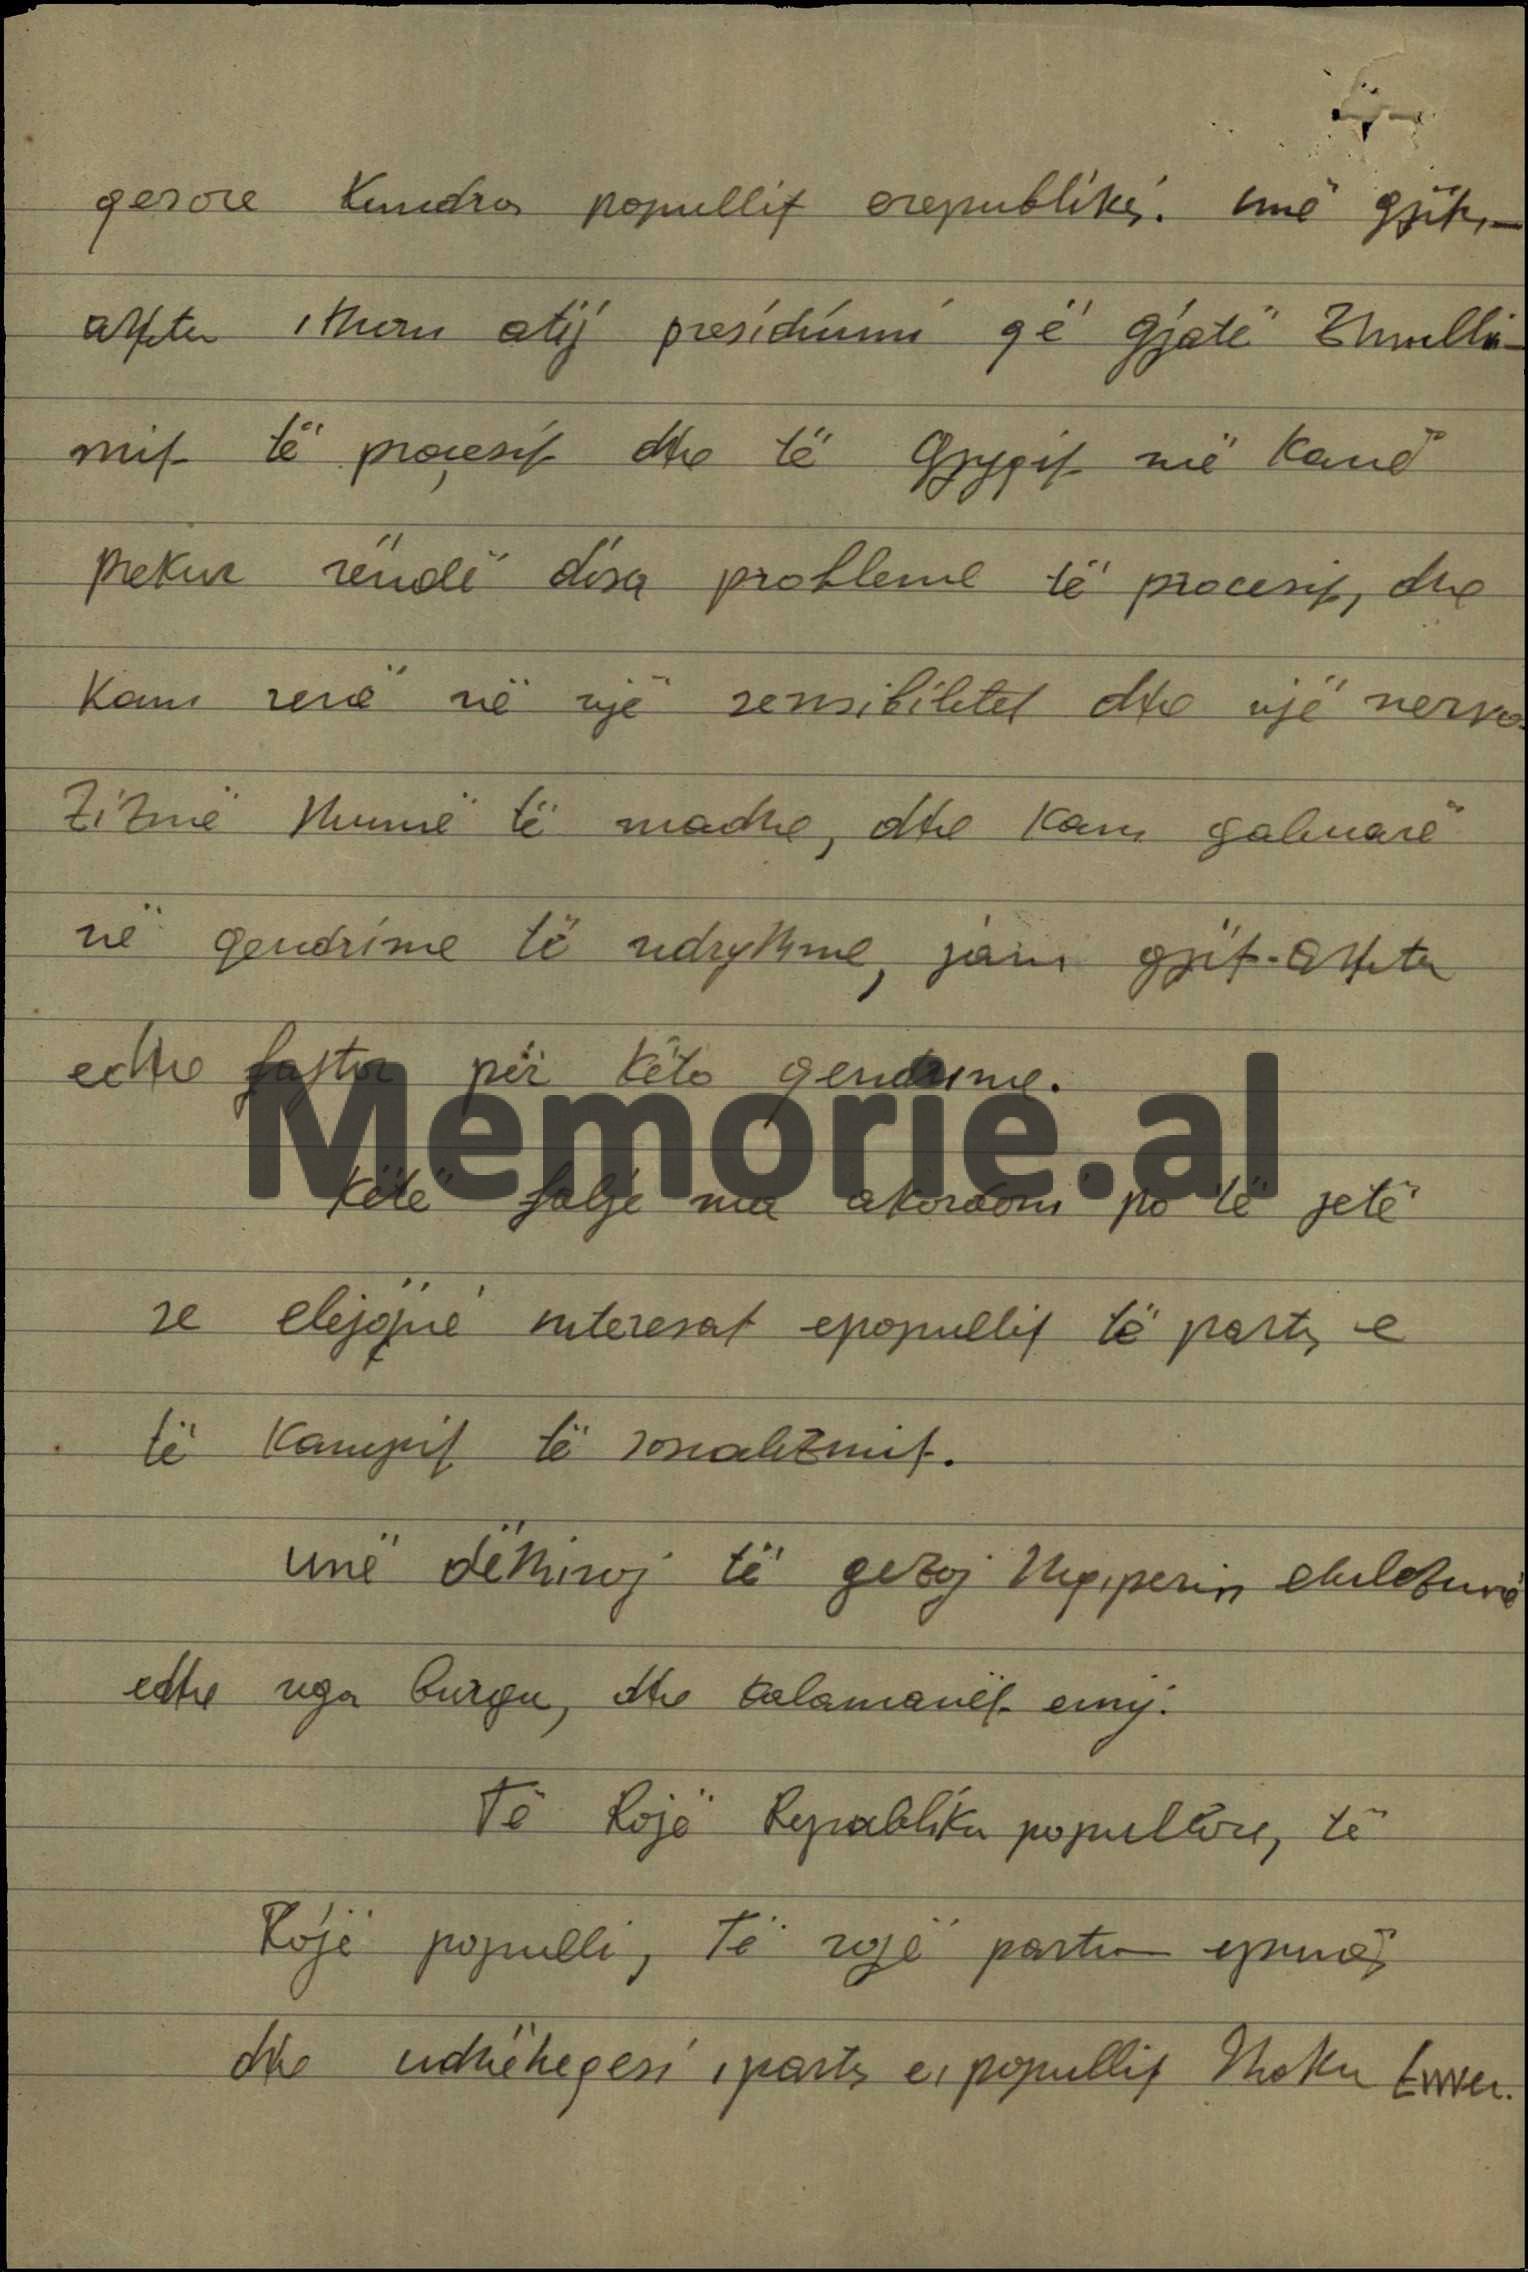 qesore Kundra popullit erepublikës. unë gjith,—
ashtu ithem atij presidiumi që gjatë Zhvilli-
mit të proçesit dhe të Gjyqit më kanë
prekur rëndë disa probleme të procesit, dhe
Kam renë në një sensibilitet dhe një nervo-
zizmë shumë të madhe, dhe kam gabuarë
në qendrime të ndryshme, jam gjit-ashtu
edhe fajtor për këto qendrime.
Memorie.al
Këtë falje ma akordoni po të jetë
se elejojnë interesat epopullit të partis e
të Kampit të socializmit.
unë dëshiroj të gezoj Shqiperin elulezume
edhe nga burgu, dhe kalamanët emij.
Të Rojë Republika popullore, të
Rojë populli, Të rojë partia epunës
dhe udhëheqesi ipartis eipopullit Shoku Enver.